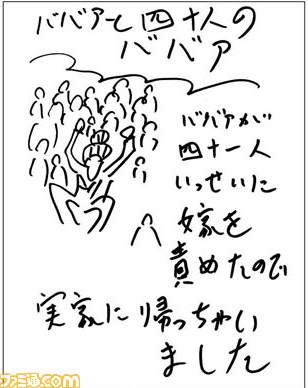 ババアと四十人の
ババア
ババアが
四十一人
いっせいに
嫁を
責めたので
実家に帰っちゃい
ました
ファミ通.com